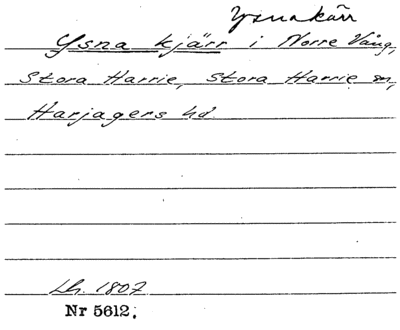 Ysnakärr
Ysna kjärr i Norre Vång,
Stora Harrie, Stora Harrie sn,
Harjagers hd
Lh. 1807
Nr 5612.